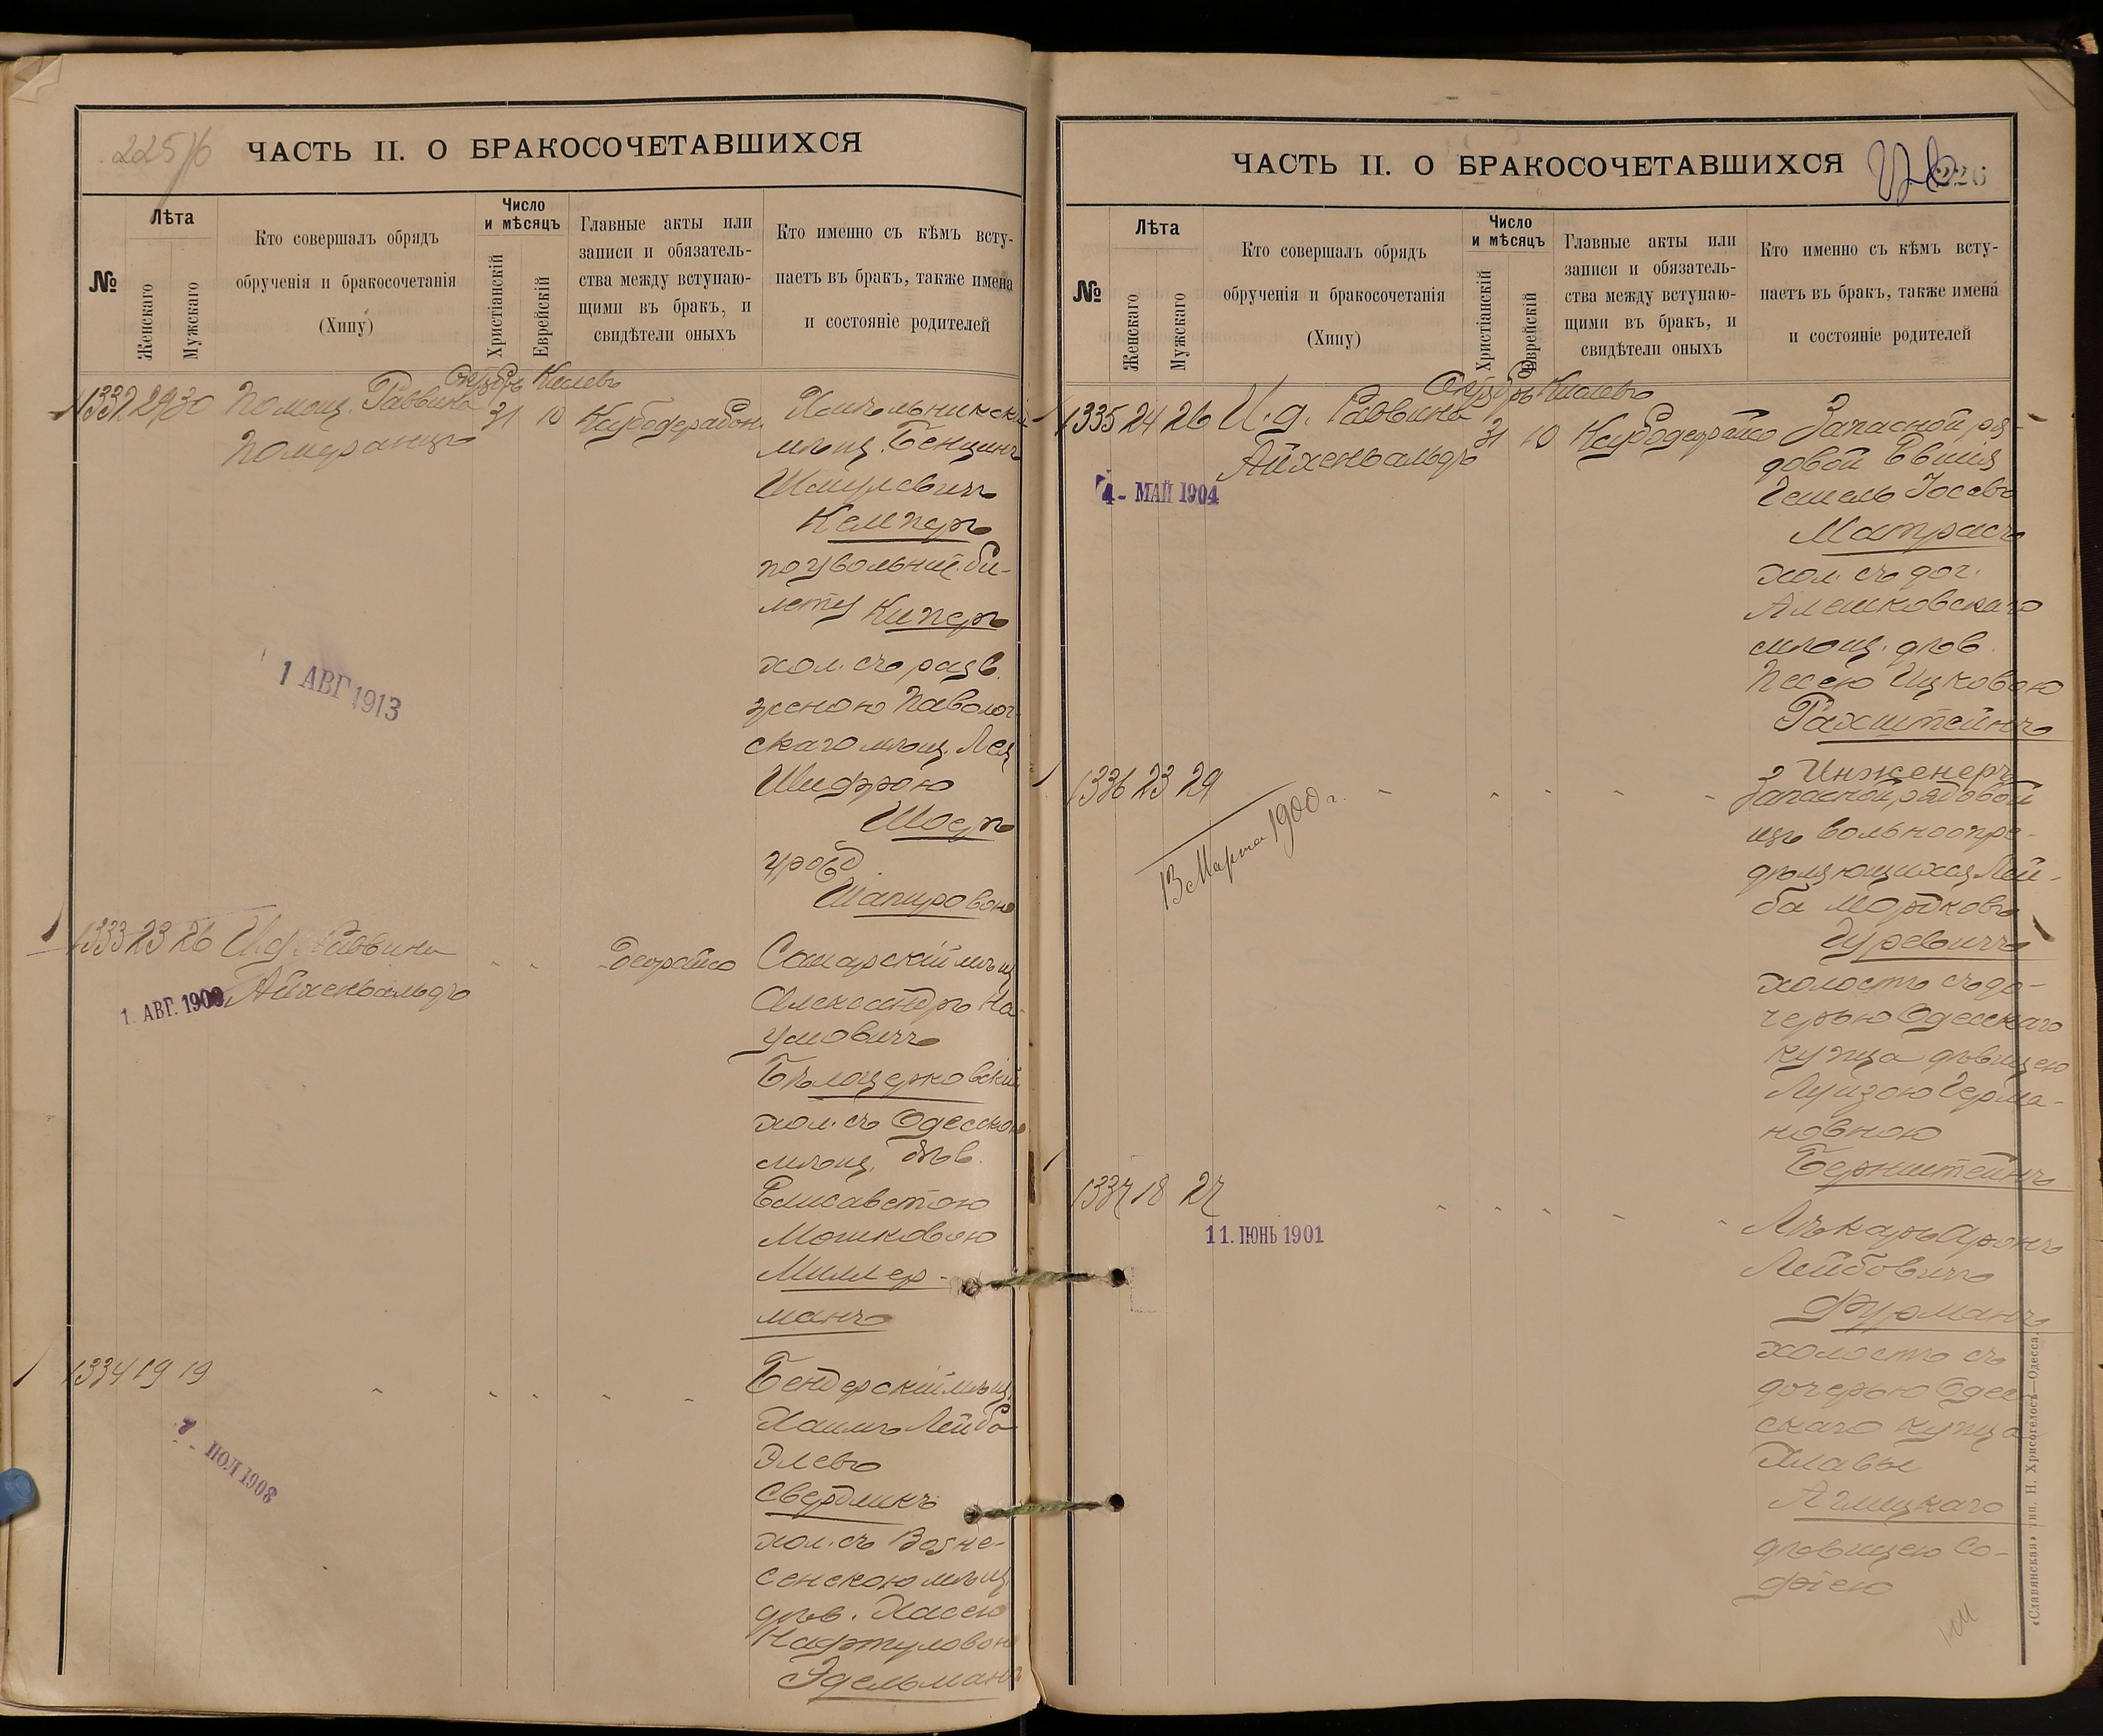 225/б
ЧАСТЬ II. О БРАКОСОЧЕТАВШИХСЯ
№
Лѣта
Женскаго
Мужскаго
Кто совершалъ обрядъ
обрученія и бракосочетанія
(Хипу)
Число
и мѣсяцъ
Христіанскій
Еврейскій
Главные акты или
записи и обязатель-
ства между вступаю-
щими въ бракъ, и
свидѣтели оныхъ
Кто именно съ кѣмъ всту-
паетъ въ бракъ, также имена
и состояніе родителей
Октябрь Кислевъ
1332 29 30 Помощ. Раввина 31 10
Померанцъ
мѣщ. Бенціонъ
Шмулевичъ
Кемперъ
по увольнит. би-
лету Киперъ
хол. съ разв.
женою Паволоч-
скаго мѣщ. Лея
Шифрою
Шоеръ
урожд
Шапировою
1 АВГ 1913
1333 23 26 И.д. Раввина
Айхенвальдъ
Самарскій мѣщ
Александръ На-
умовичъ
Бѣлоцерковскій
хол. съ Одесскою
мѣщ. дѣв.
Елисаветою
Мошковою
Миллер-
манъ
1. АВГ. 1909
1334 19 19
Бендерскій мѣщ.
Хаимъ Лейба
Элевъ
Свердликъ
хол. съ Возне-
сенскою мѣщ
дѣв. Хасею
Нафтуловою
Эдельманъ
ЧАСТЬ II. О БРАКОСОЧЕТАВШИХСЯ
226
№
Лѣта
Женскаго
Мужскаго
Кто совершалъ обрядъ
обрученія и бракосочетанія
(Хипу)
Число
и мѣсяцъ
Христіанскій
Еврейскій
Главные акты или
записи и обязатель-
ства между вступаю-
щими въ бракъ, и
свидѣтели оныхъ
Кто именно съ кѣмъ всту-
паетъ въ бракъ, также имена
и состояніе родителей
Октябрь Кислевъ
1335 24 26 И.д. Раввина 31 10
Айхенвальдъ
Запасной ря-
довой Евшія
Гешель Іосевъ
Матрасъ
хол. съ доч.
Алешковскаго
мѣщ. дѣв.
Песею Ицковою
Рахштейнъ
4 - МАЙ 1904
1336 23 29
Инженеръ
Запасной рядовой
изъ вольнопре-
дѣляющихся Лей-
ба Мордковъ
Гуревичъ
холостъ съ до-
черью Одесскаго
купца дѣвицею
Луизою Герма-
новною
Бернштейнъ
13 Марта 1900 г.
1337 18 27
Лѣкарь Аронъ
Лейбовичъ
Фурманъ
холостъ съ
дочерью Одес
скаго купца
Хлавы
дѣвицею Со-
фіею
11. ІЮНЬ 1901
«Славянская» тип. Н. Хрисогелосъ—Одесса.